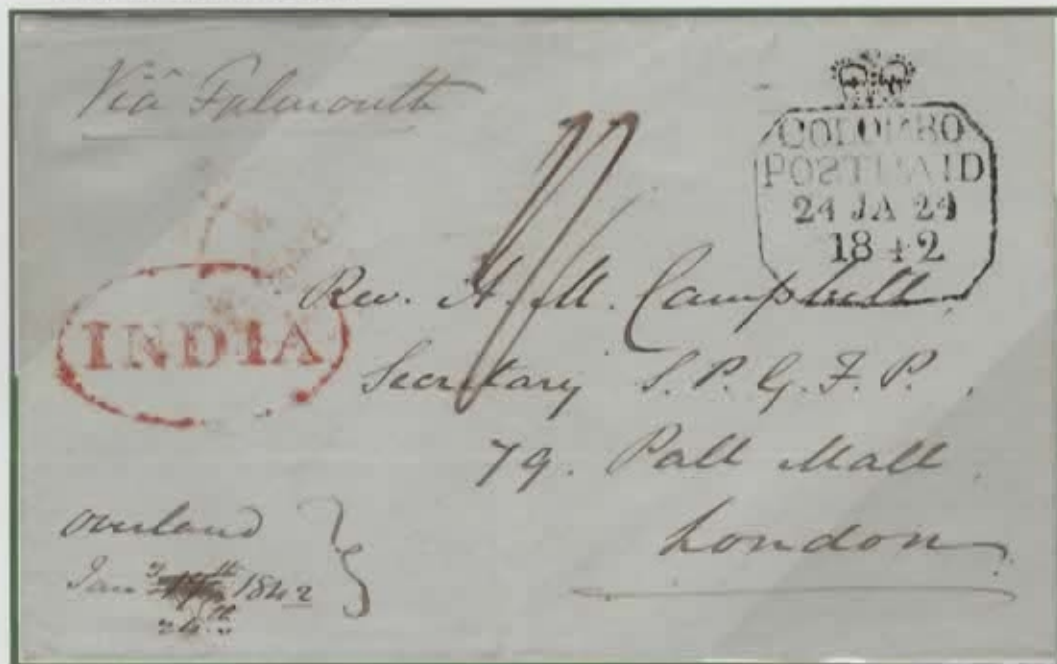 Viâ Falmouth
COLOMBO
POST PAID
24 JA 24
1842
INDIA
Rev. A. M. Campbell
Secretary S. P. G. F. P.
79. Pall Mall
London
overland
Jany 1842
24th